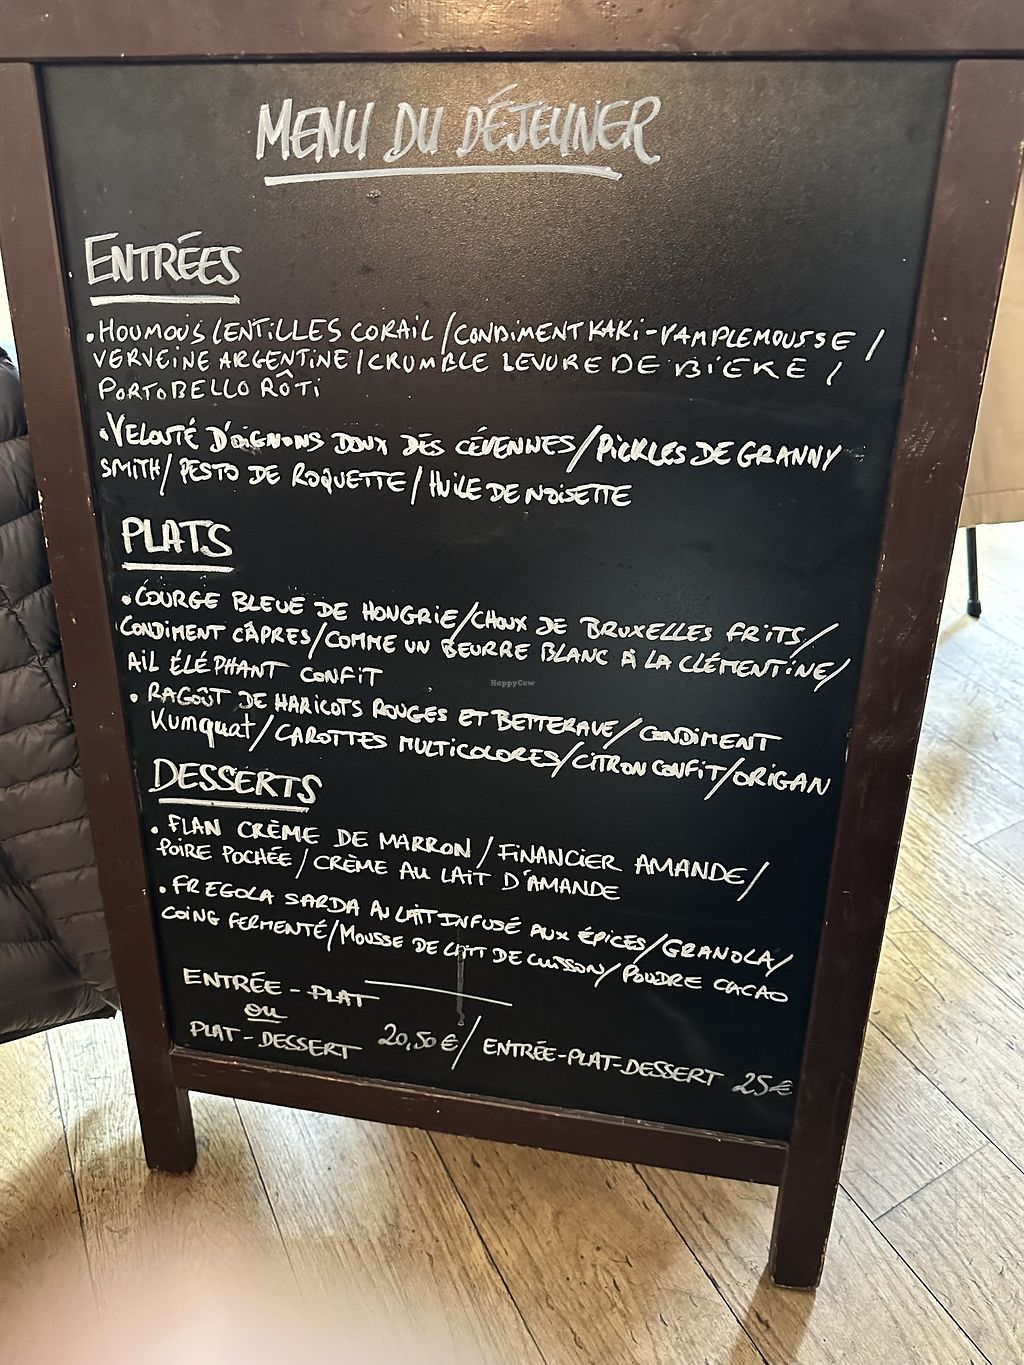 MENU DU DÉJEUNER
ENTRÉES
• HOUMOUS LENTILLES CORAIL / CONDIMENT KAKI-PAMPLEMOUSSE /
VERVEINE ARGENTINE / CRUMBLE LEVURE DE BIERE /
PORTOBELLO RÔTI
• VELOUTÉ D'OIGNONS DOUX DES CÉVENNES / PICKLES DE GRANNY
SMITH / PESTO DE ROQUETTE / HUILE DE NOISETTE
PLATS
• COURGE BLEUE DE HONGRIE / CHOUX DE BRUXELLES FRITS /
CONDIMENT CÂPRES / COMME UN BEURRE BLANC À LA CLÉMENTINE /
AIL ÉLÉPHANT CONFIT
HappyCow
• RAGOÛT DE HARICOTS ROUGES ET BETTERAVE / CONDIMENT
Kumquat / CAROTTES MULTICOLORES / CITRON CONFIT / ORIGAN
DESSERTS
• FLAN CRÈME DE MARRON / FINANCIER AMANDE /
POIRE POCHÉE / CRÈME AU LAIT D'AMANDE
• FREGOLA SARDA AU LAIT INFUSÉ AUX ÉPICES / GRANOLA /
COING FERMENTÉ / MOUSSE DE LAIT DE CUISSON / POUDRE CACAO
ENTRÉE - PLAT
ou
PLAT - DESSERT 20,50 € / ENTRÉE-PLAT-DESSERT 25€